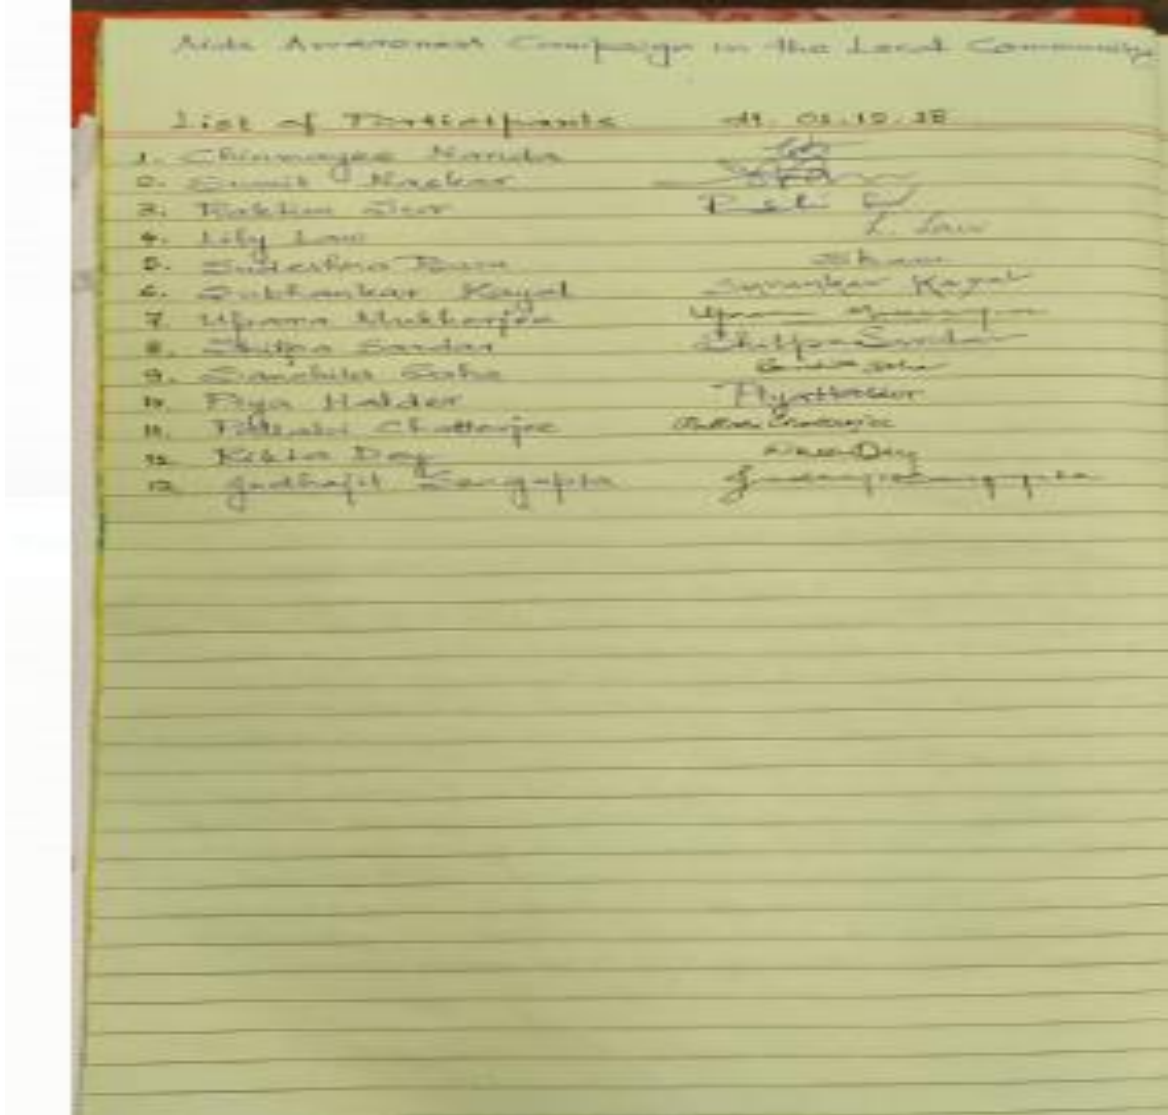 Aids Awareness Campaign in the Local Community
List of Participants dt. 01.12.18
1. Chinmayee Nanda
2. Sumit Naskar
3. Raktim Sur
4. Lily Law L. Law
5. Sudeshna
6. Subhankar Kayal Subhankar Kayal
7. Upama Mukherjee
8. Shilpa Sardar Shilpa Sardar
9. Sanchita Saha
10. Piya Halder Piya Halder
11. Pallabi Chatterjee Pallabi Chatterjee
12. Rikta Dey Dey
13. Judhajit Sengupta Judhajit Sengupta